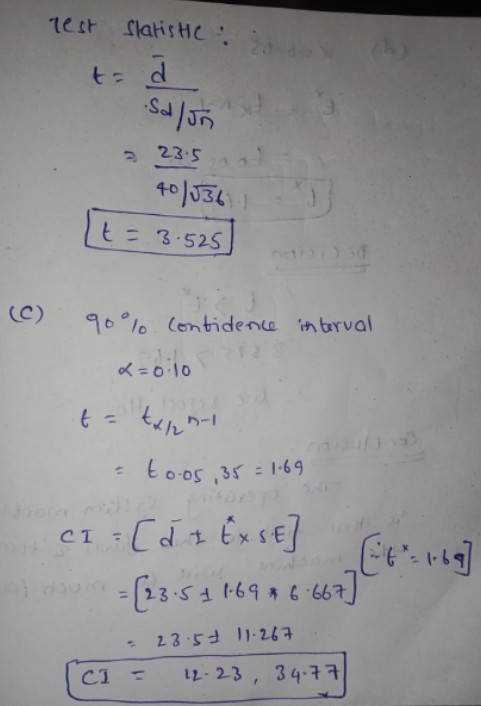 Test Statistic :
t = d̄
Sd/√n
= 23.5
40/√36
t = 3.525
(C) 90% Confidence interval
α = 0.10
t = tα/2 n-1
= t0.05, 35 = 1.69
CI = [d̄ ± t* x S.E] [∵ t* = 1.69]
= [23.5 ± 1.69 * 6.667]
= 23.5 ± 11.267
CI = 12.23, 34.77